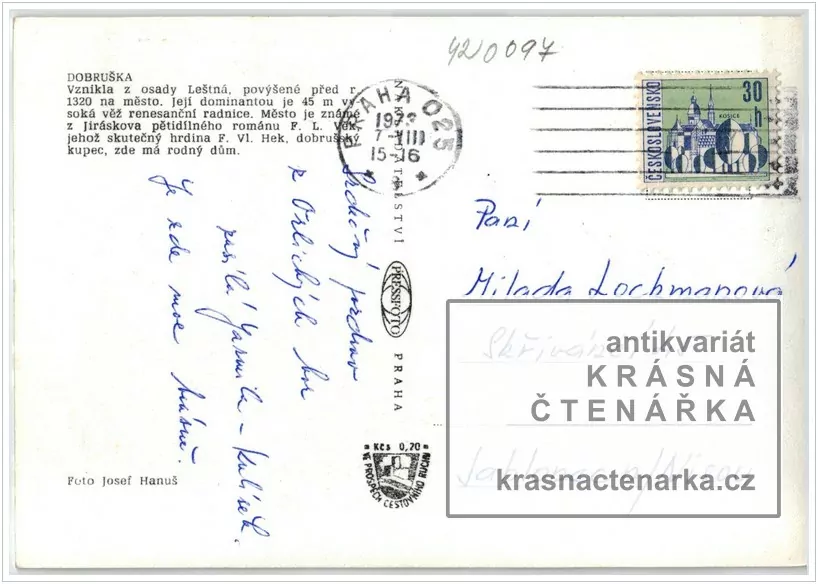 4210097
DOBRUŠKA
Vznikla z osady Leštná, povýšené před r.
1320 na město. Její dominantou je 45 m vy-
soká věž renesanční radnice. Město je známé
z Jiráskova pětidílného románu F. L. Věk,
jehož skutečný hrdina F. Vl. Hek, dobrušský
kupec, zde má rodný dům.
Srdečný pozdrav
z Orlických hor
posílá Jarmila - Kulísek.
Je zde moc krásně.
Foto Josef Hanuš
PRAHA 025
1973
7.-VIII
15-16
NAKLADATELSTVÍ
PRESSFOTO
PRAHA
Kčs 0,20
VE PROSPĚCH CESTOVNÍHO RUCHU
ČESKOSLOVENSKO
30 h
KOŠICE
Paní
Milada Lochmanová
antikvariát
KRÁSNÁ
ČTENÁŘKA
krasnactenarka.cz
Jablonec n/Nisou